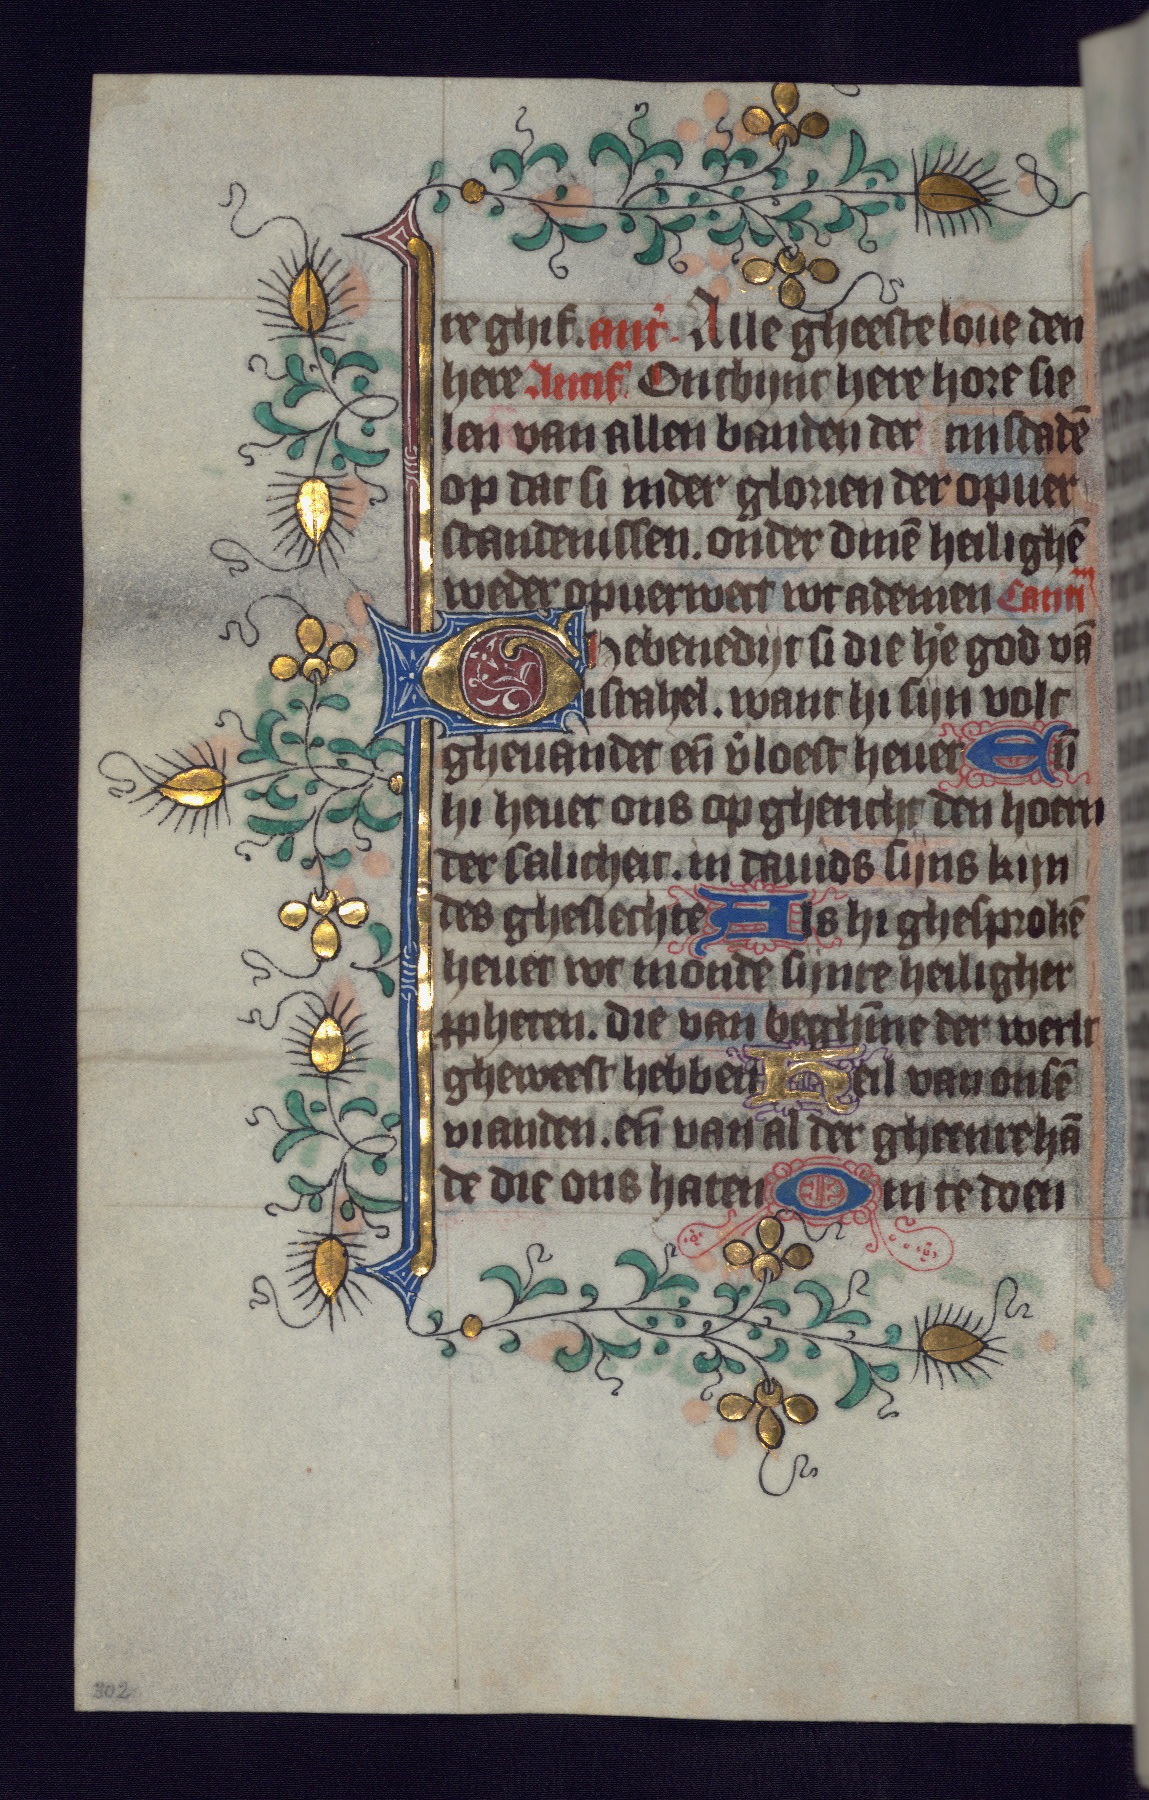 re ghif. ant̄. Alle gheeste loue den
here Antif̄. Ontbijnt here hore sie
len van allen banden der misdadē
op dat si in der glorien der opuer
standenissen. onder dinē heilighē
weder opuerwect wt ademen Cantim
Ghebenedijt si die hē god vā
israhel. want hi sijn volc
gheuandet en̄ v̄loest heuet En̄
hi heuet ons op ghericht den hoern
der salicheit. in dauids sijns kijn
des gheslechte Als hi ghesprokē
heuet wt monde sijnre heiligher
ꝓpheten. die van beghīne der werlt
gheweest hebben Heil van onsē
vianden. en̄ van al der gheenre hā
de die ons haten Om te doen
302